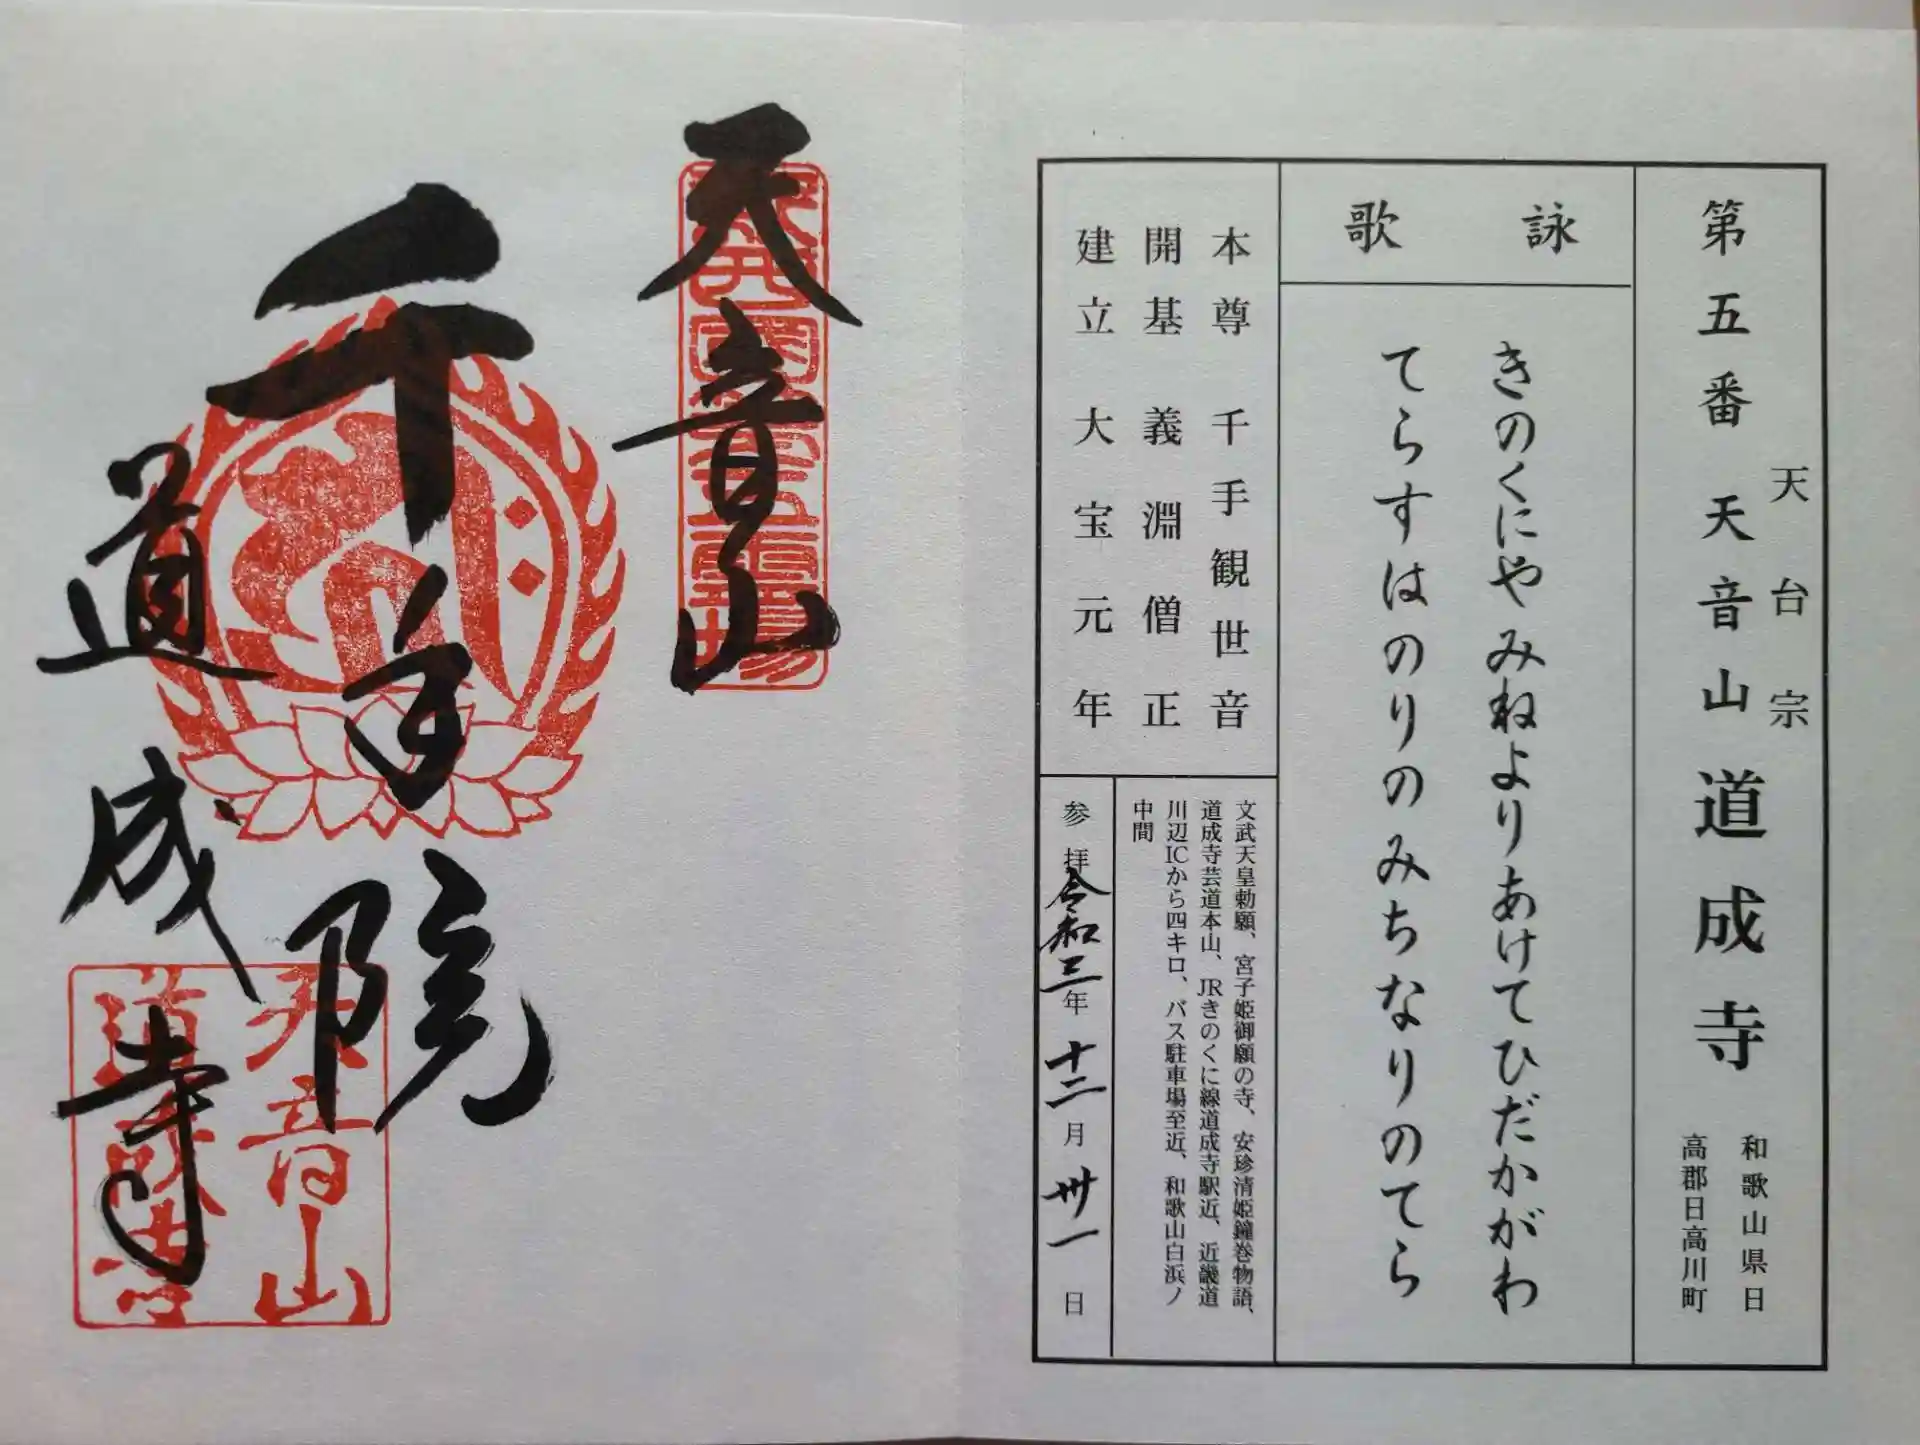 第五番 天音山 道成寺
天台宗
和歌山県日
高郡日高川町
詠歌
きのくにや みねよりあけてひだかがわ
てらすはのりのみちなりのてら
本尊 千手観世音
開基 義淵僧正
建立 大宝元年
文武天皇勅願、宮子姫御願の寺、安珍清姫鐘巻物語、
道成寺芸道本山、JRきのくに線道成寺駅近、近畿道
川辺ICから四キロ、バス駐車場至近、和歌山白浜ノ
中間
参拝 令和三年 十二月 丗一日
天音山
千手院
道成寺
天音山
道成寺